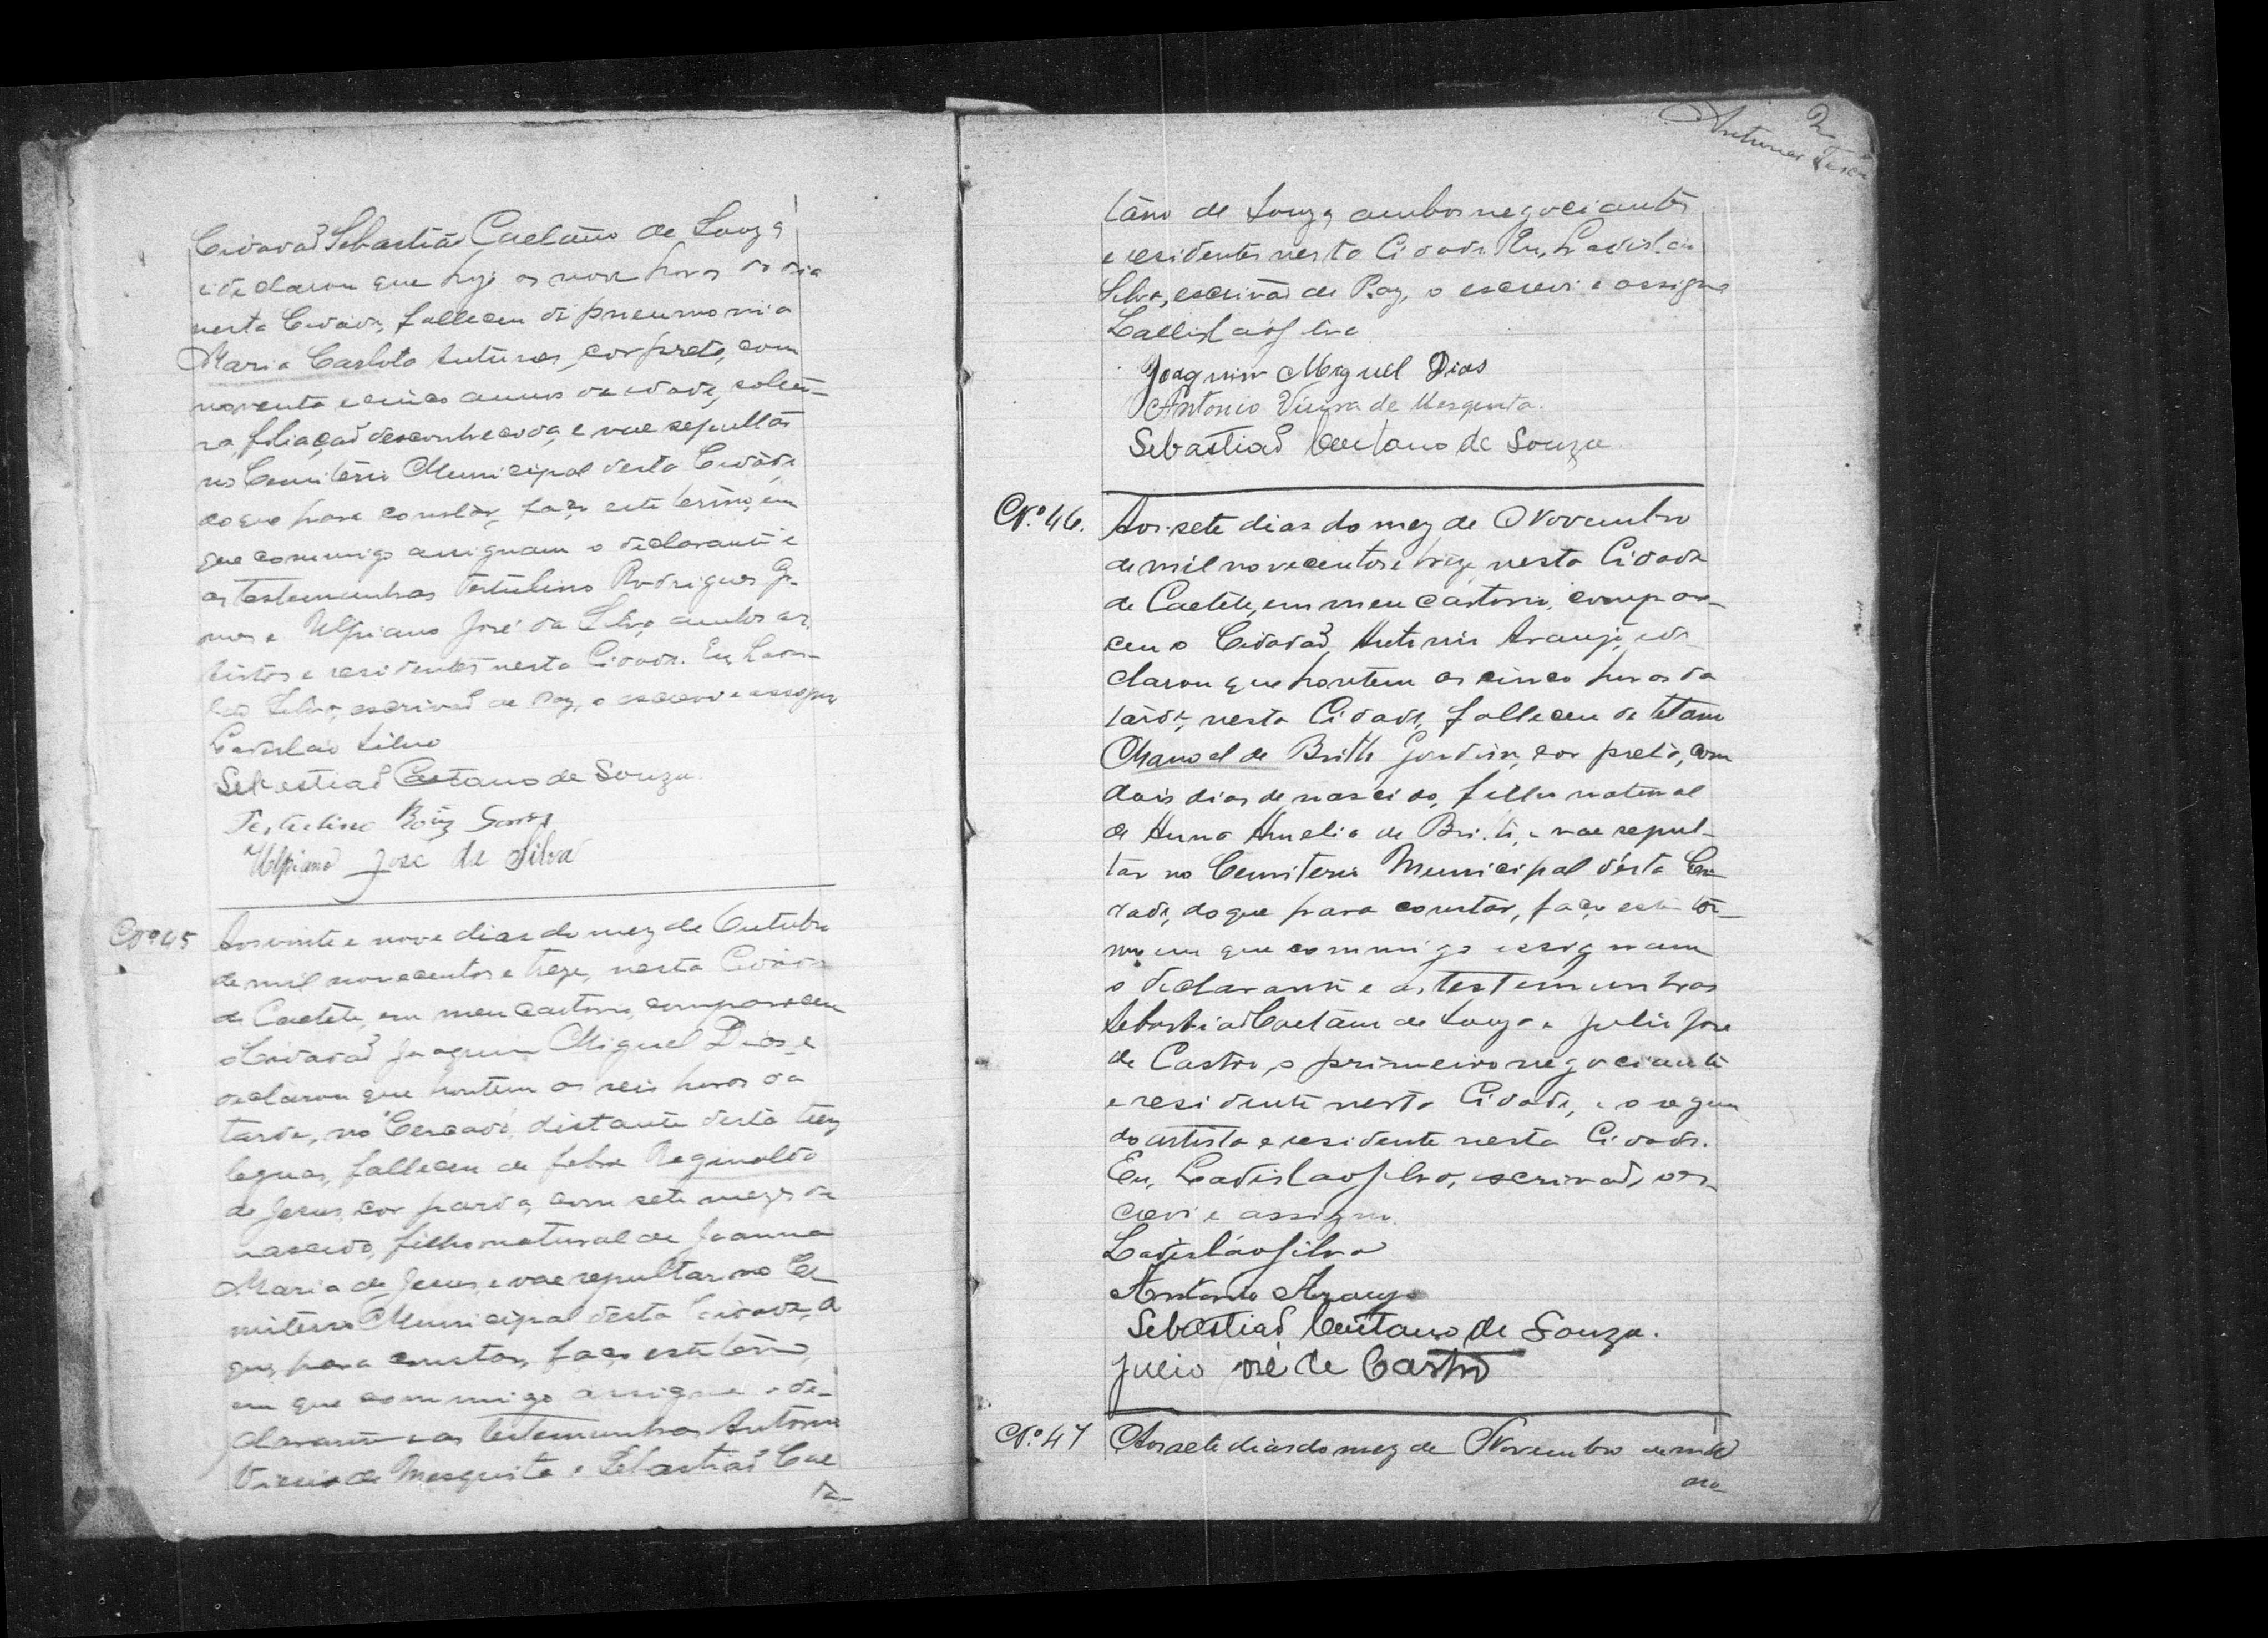 Cidadaõ Sebastiaõ Caetano de Souza
e declarou que hoje as nove horas do dia
nesta Cidade, falleceu de pneumonia
Maria Carlota Antunes, cor preta, com
noventa e cinco annos de idade, soltei-
ra, filiaçaõ desconhecida, e vae sepultar
no Cemiterio Municipal desta Cidade
do que para constar, faço este termo, em
que commigo assignam o declarante e
as testemunhas Tertulino Rodrigues Go-
mes e Ulpiano José da Silva, ambos ar-
tistas e residentes nesta Cidade. Eu, Ladis-
lao Silva, escrivaõ de Paz, o escrevi e assigno
Ladislao Silva
Sebastiaõ Caetano de Souza.
Tertulino Roiz Gomes
Ulpiano José da Silva
Nº 45 Aos vinte e nove dias do mez de Outubro
de mil novecentos e treze, nesta Cidade
de Caetité, em meu cartorio, compareceu
o Cidadaõ Joaquim Miguel Dias, e
declarou que hontem as seis horas da
tarde, no "Cercado", distante desta trez
leguas, falleceu de febre Reginaldo
de Jesus, cor parda, com sete mezes de
nascido, filho natural de Joanna
Maria de Jesus, e vae sepultar no Ce-
miterio Municipal desta Cidade, do
que, para constar, faço este termo,
em que commigo assigna o de-
clarante e as testemunhas Antonio
Vieira de Mesquita e Sebastiaõ Cae
ta-
2
Antunes
tano de Souza, ambos negociantes
e residentes nesta Cidade. Eu, Ladislao
Silva, escrivaõ de Paz, o escrevi e assigno
Ladislao Silva
Joaquim Miguel Dias
Antonio Vieira de Mesquita.
Sebastiaõ Caetano de Souza
Nº 46. Aos sete dias do mez de Novembro
de mil novecentos e treze, nesta Cidade
de Caetité, em meu cartorio, compare-
ceu o Cidadaõ Antonio Araujo, e de
clarou que hontem as cinco horas da
tarde, nesta Cidade, falleceu de tetano
Manoel de Britto Gondim, cor preta, com
dois dias de nascido, filho natural
de Anna Amelia de Britto, e vae sepul-
tar no Cemiterio Municipal désta Ci-
dade, do que para constar, faço este ter-
mo em que commigo assignam
o declarante e as testemunhas
Sebastiaõ Caetano de Souza e Julio José
de Castro, o primeiro negociante
e residente nesta Cidade, e o segun
do artista e residente nesta Cidade.
Eu, Ladislao Silva, escrivaõ, o es-
crevi e assigno.
Ladisláo Silva
Antonio Araujo
Sebastiaõ Caetano de Souza.
Julio José de Castro
Nº 47 Aos sete dias do mez de Novembro de mil
no-